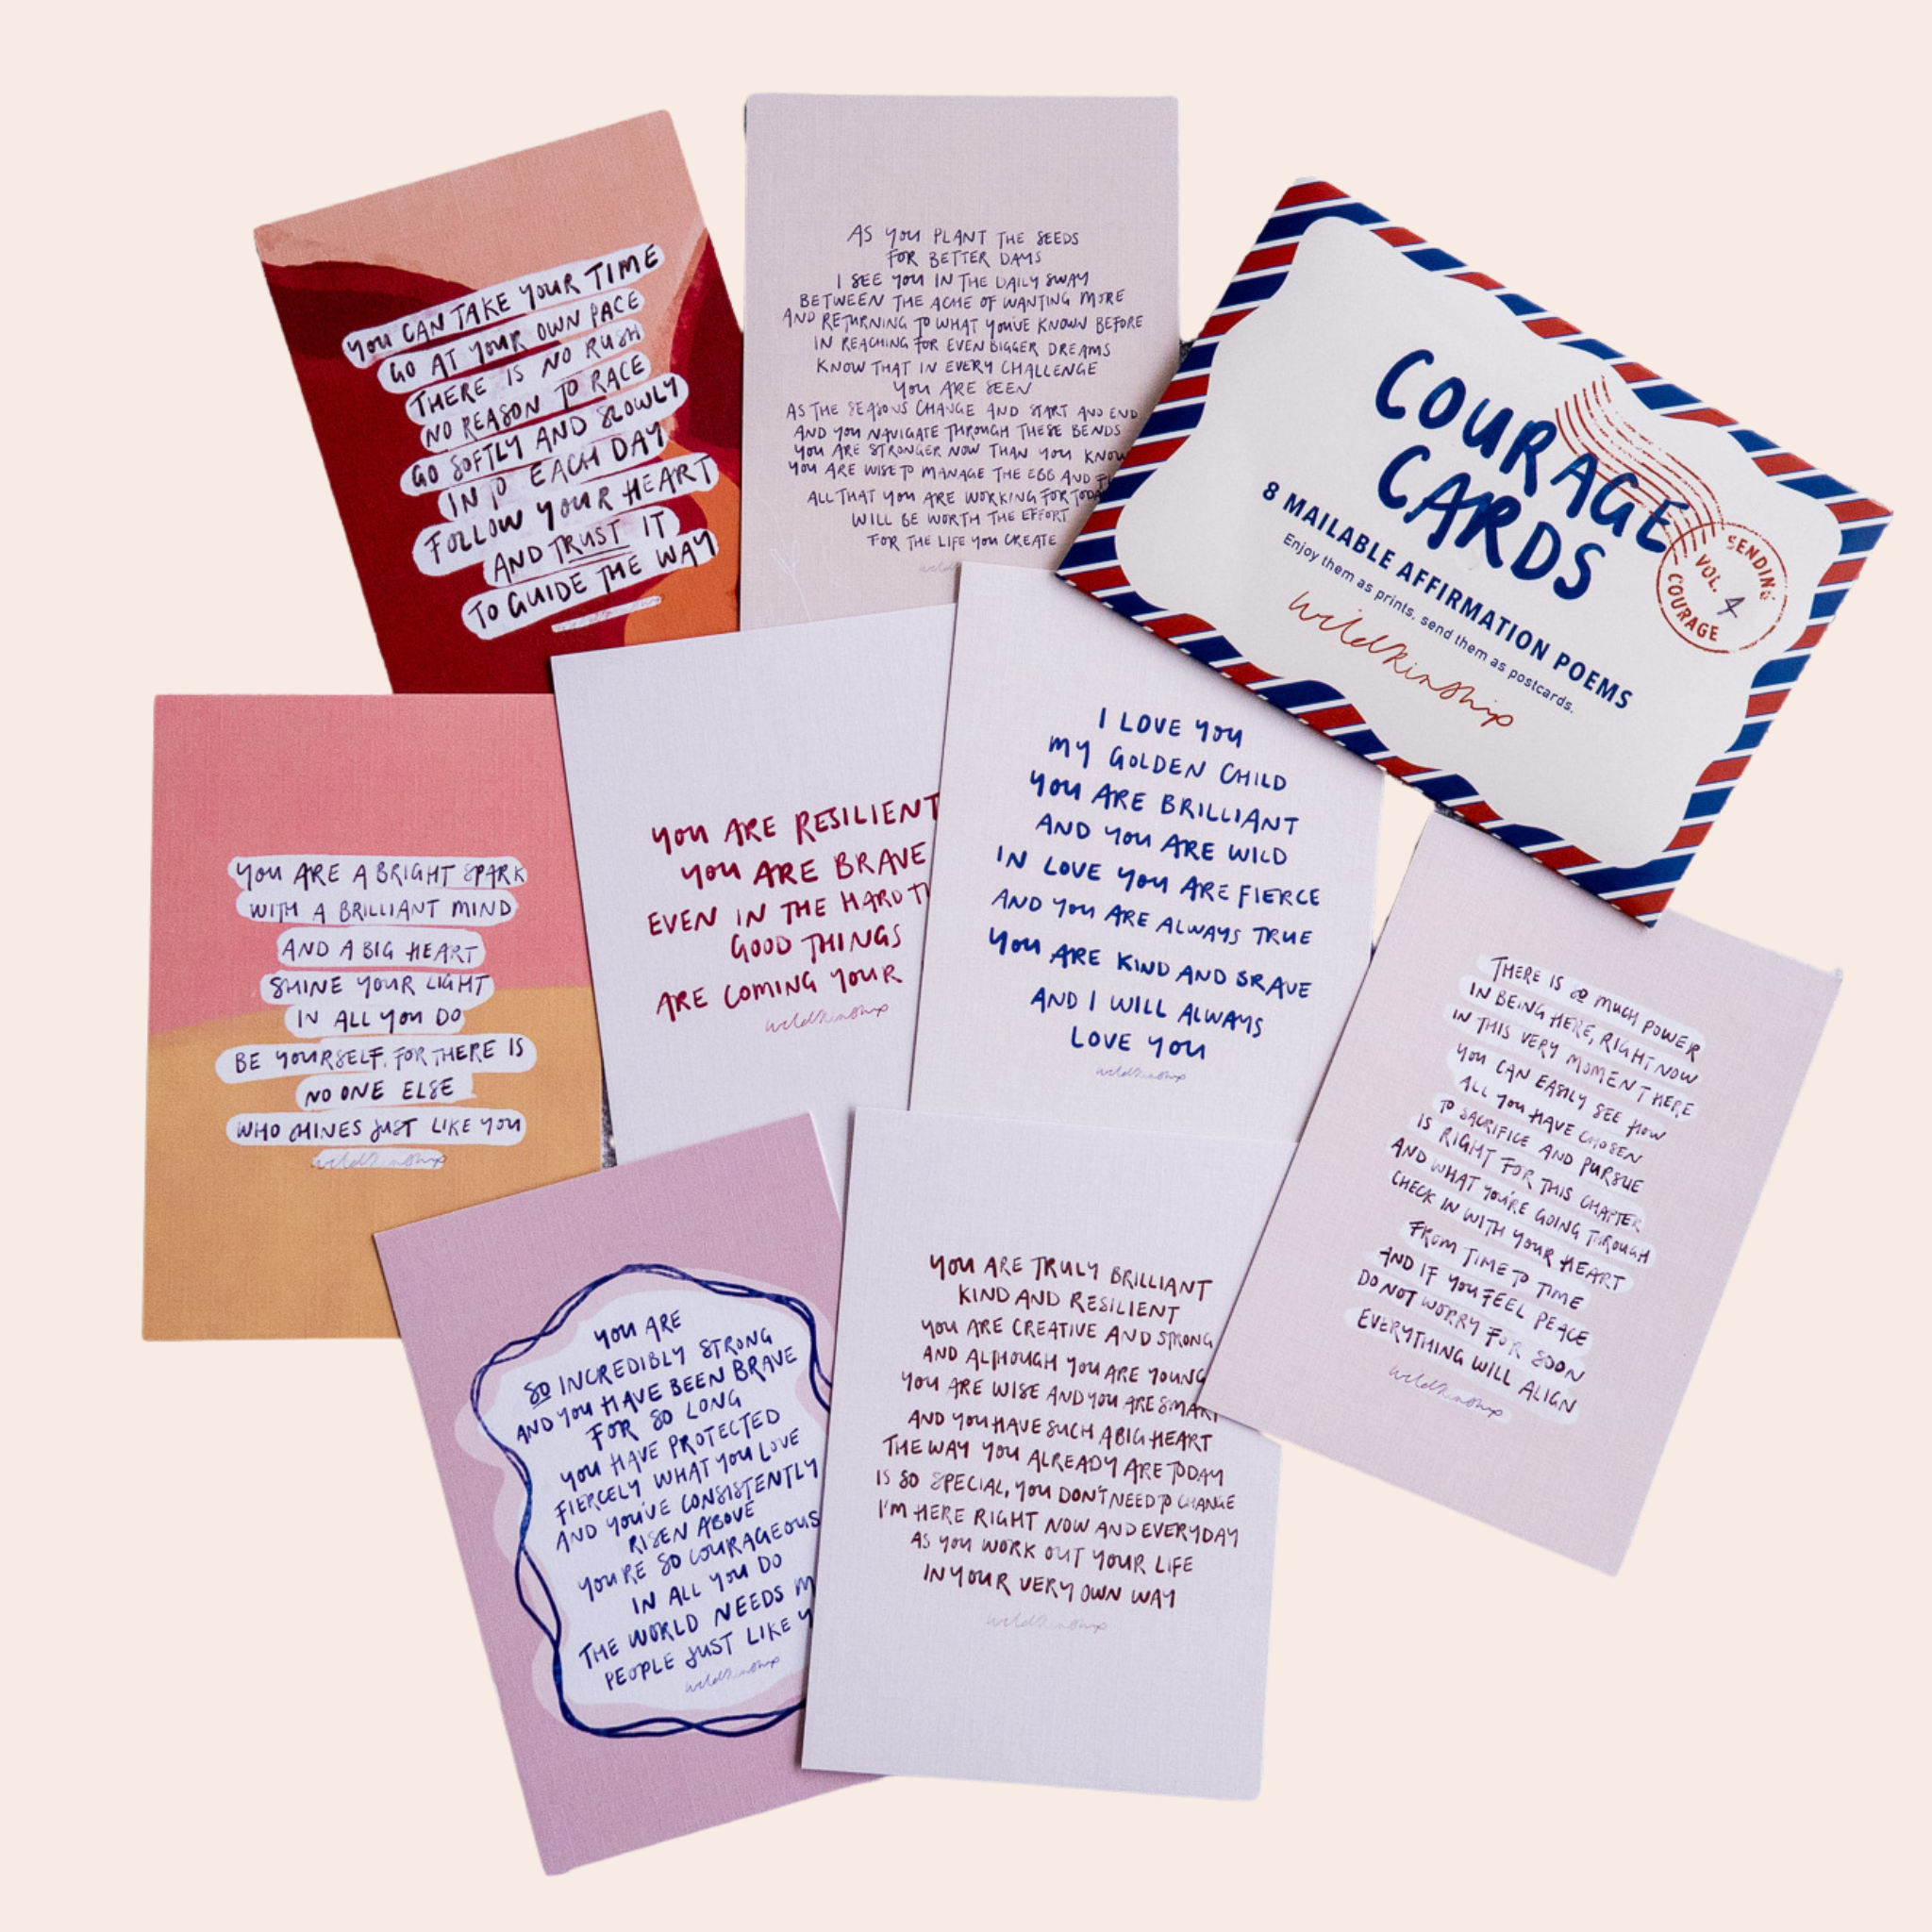 YOU CAN TAKE YOUR TIME
GO AT YOUR OWN PACE
THERE IS NO RUSH
NO REASON TO RACE
GO SOFTLY AND SLOWLY
INTO EACH DAY
FOLLOW YOUR HEART
AND TRUST IT
TO GUIDE THE WAY
AS YOU PLANT THE SEEDS
FOR BETTER DAYS
I SEE YOU IN THE DAILY SWAY
BETWEEN THE ACHE OF WANTING MORE
AND RETURNING TO WHAT YOU'VE KNOWN BEFORE
IN REACHING FOR EVEN BIGGER DREAMS
KNOW THAT IN EVERY CHALLENGE
YOU ARE SEEN
AS THE SEASONS CHANGE AND START AND END
AND YOU NAVIGATE THROUGH THESE BENDS
YOU ARE STRONGER NOW THAN YOU KNOW
YOU ARE WISE TO MANAGE THE EBB AND
ALL THAT YOU ARE WORKING FOR TODA
WILL BE WORTH THE EFFORT
FOR THE LIFE YOU CREATE
COURAGE
CARDS
8 MAILABLE AFFIRMATION POEMS
Enjoy them as prints, send them as postcards.
wildkinship
SENDING
VOL. 4
COURAGE
YOU ARE A BRIGHT SPARK
WITH A BRILLIANT MIND
AND A BIG HEART
SHINE YOUR LIGHT
IN ALL YOU DO
BE YOURSELF, FOR THERE IS
NO ONE ELSE
WHO SHINES JUST LIKE YOU
wildkinship
YOU ARE RESILIENT
YOU ARE BRAVE
EVEN IN THE HARD TI
GOOD THINGS
ARE COMING YOUR
wildkinship
I LOVE YOU
MY GOLDEN CHILD
YOU ARE BRILLIANT
AND YOU ARE WILD
IN LOVE YOU ARE FIERCE
AND YOU ARE ALWAYS TRUE
YOU ARE KIND AND BRAVE
AND I WILL ALWAYS
LOVE YOU
wildkinship
THERE IS SO MUCH POWER
IN BEING HERE, RIGHT NOW
IN THIS VERY MOMENT HERE
YOU CAN EASILY SEE HOW
ALL YOU HAVE CHOSEN
TO SACRIFICE AND PURSUE
IS RIGHT FOR THIS CHAPTER
AND WHAT YOU'RE GOING THROUGH
CHECK IN WITH YOUR HEART
FROM TIME TO TIME
AND IF YOU FEEL PEACE
DO NOT WORRY FOR SOON
EVERYTHING WILL ALIGN
wildkinship
YOU ARE
SO INCREDIBLY STRONG
AND YOU HAVE BEEN BRAVE
FOR SO LONG
YOU HAVE PROTECTED
FIERCELY WHAT YOU LOVE
AND YOU'VE CONSISTENTLY
RISEN ABOVE
YOU'RE SO COURAGEOUS
IN ALL YOU DO
THE WORLD NEEDS M
PEOPLE JUST LIKE Y
wildkinship
YOU ARE TRULY BRILLIANT
KIND AND RESILIENT
YOU ARE CREATIVE AND STRONG
AND ALTHOUGH YOU ARE YOUNG
YOU ARE WISE AND YOU ARE SMART
AND YOU HAVE SUCH A BIG HEART
THE WAY YOU ALREADY ARE TODAY
IS SO SPECIAL, YOU DON'T NEED TO CHANGE
I'M HERE RIGHT NOW AND EVERYDAY
AS YOU WORK OUT YOUR LIFE
IN YOUR VERY OWN WAY
wildkinship